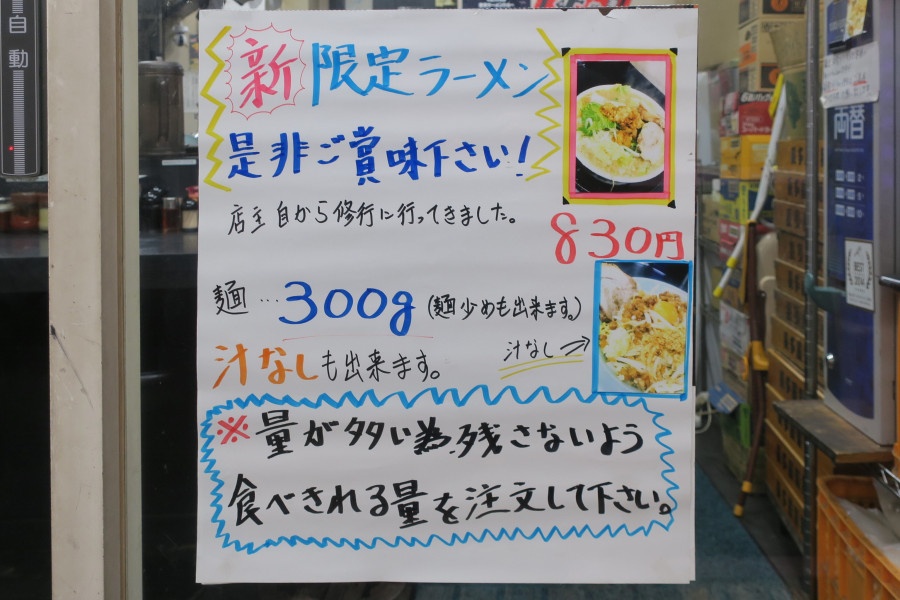 自動
新 限定ラーメン
是非ご賞味下さい!
店主自から修行に行ってきました。
830円
麺…300g(麺少めも出来ます。)
汁なしも出来ます。
汁なし→
※量が多い為、残さないよう
食べきれる量を注文して下さい。
両替
BEST